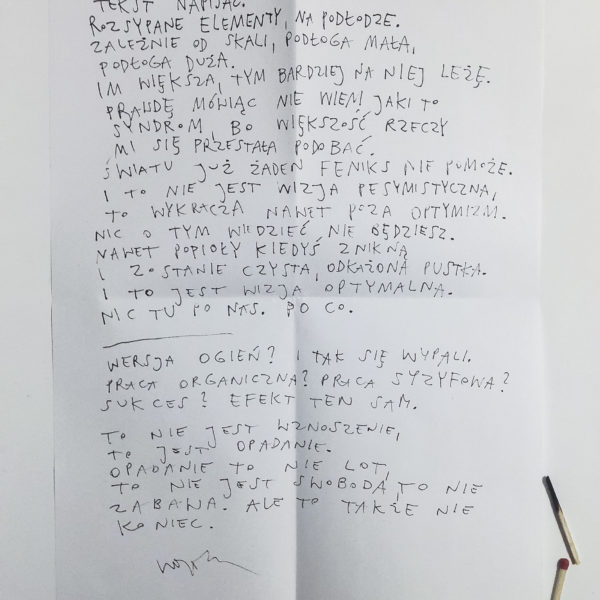 TEKST NAPISAĆ.
ROZSYPANE ELEMENTY, NA PODŁODZE.
ZALEŻNIE OD SKALI, PODŁOGA MAŁA,
PODŁOGA DUŻA.
IM WIĘKSZA, TYM BARDZIEJ NA NIEJ LEŻĘ.
PRAWDĘ MÓWIĄC NIE WIEM JAKI TO
SYNDROM, BO WIĘKSZOŚĆ RZECZY
MI SIĘ PRZESTAŁA PODOBAĆ.
ŚWIATU JUŻ ŻADEN FENIKS NIE POMOŻE.
I TO NIE JEST WIZJA PESYMISTYCZNA,
TO WYKRACZA NAWET POZA OPTYMIZM.
NIC O TYM WIEDZIEĆ NIE BĘDZIESZ.
NAWET POPIOŁY KIEDYŚ ZNIKNĄ
I ZOSTANIE CZYSTA, ODKAŻONA PUSTKA.
I TO JEST WIZJA OPTYMALNA.
NIC TU PO NAS. PO CO.
WERSJA OGIEŃ? I TAK SIĘ WYPALI.
PRACA ORGANICZNA? PRACA SYZYFOWA?
SUKCES? EFEKT TEN SAM.
TO NIE JEST WZNOSZENIE,
TO JEST OPADANIE.
OPADANIE TO NIE LOT,
TO NIE JEST SWOBODA, TO NIE
ZABAWA. ALE TO TAKŻE NIE
KONIEC.